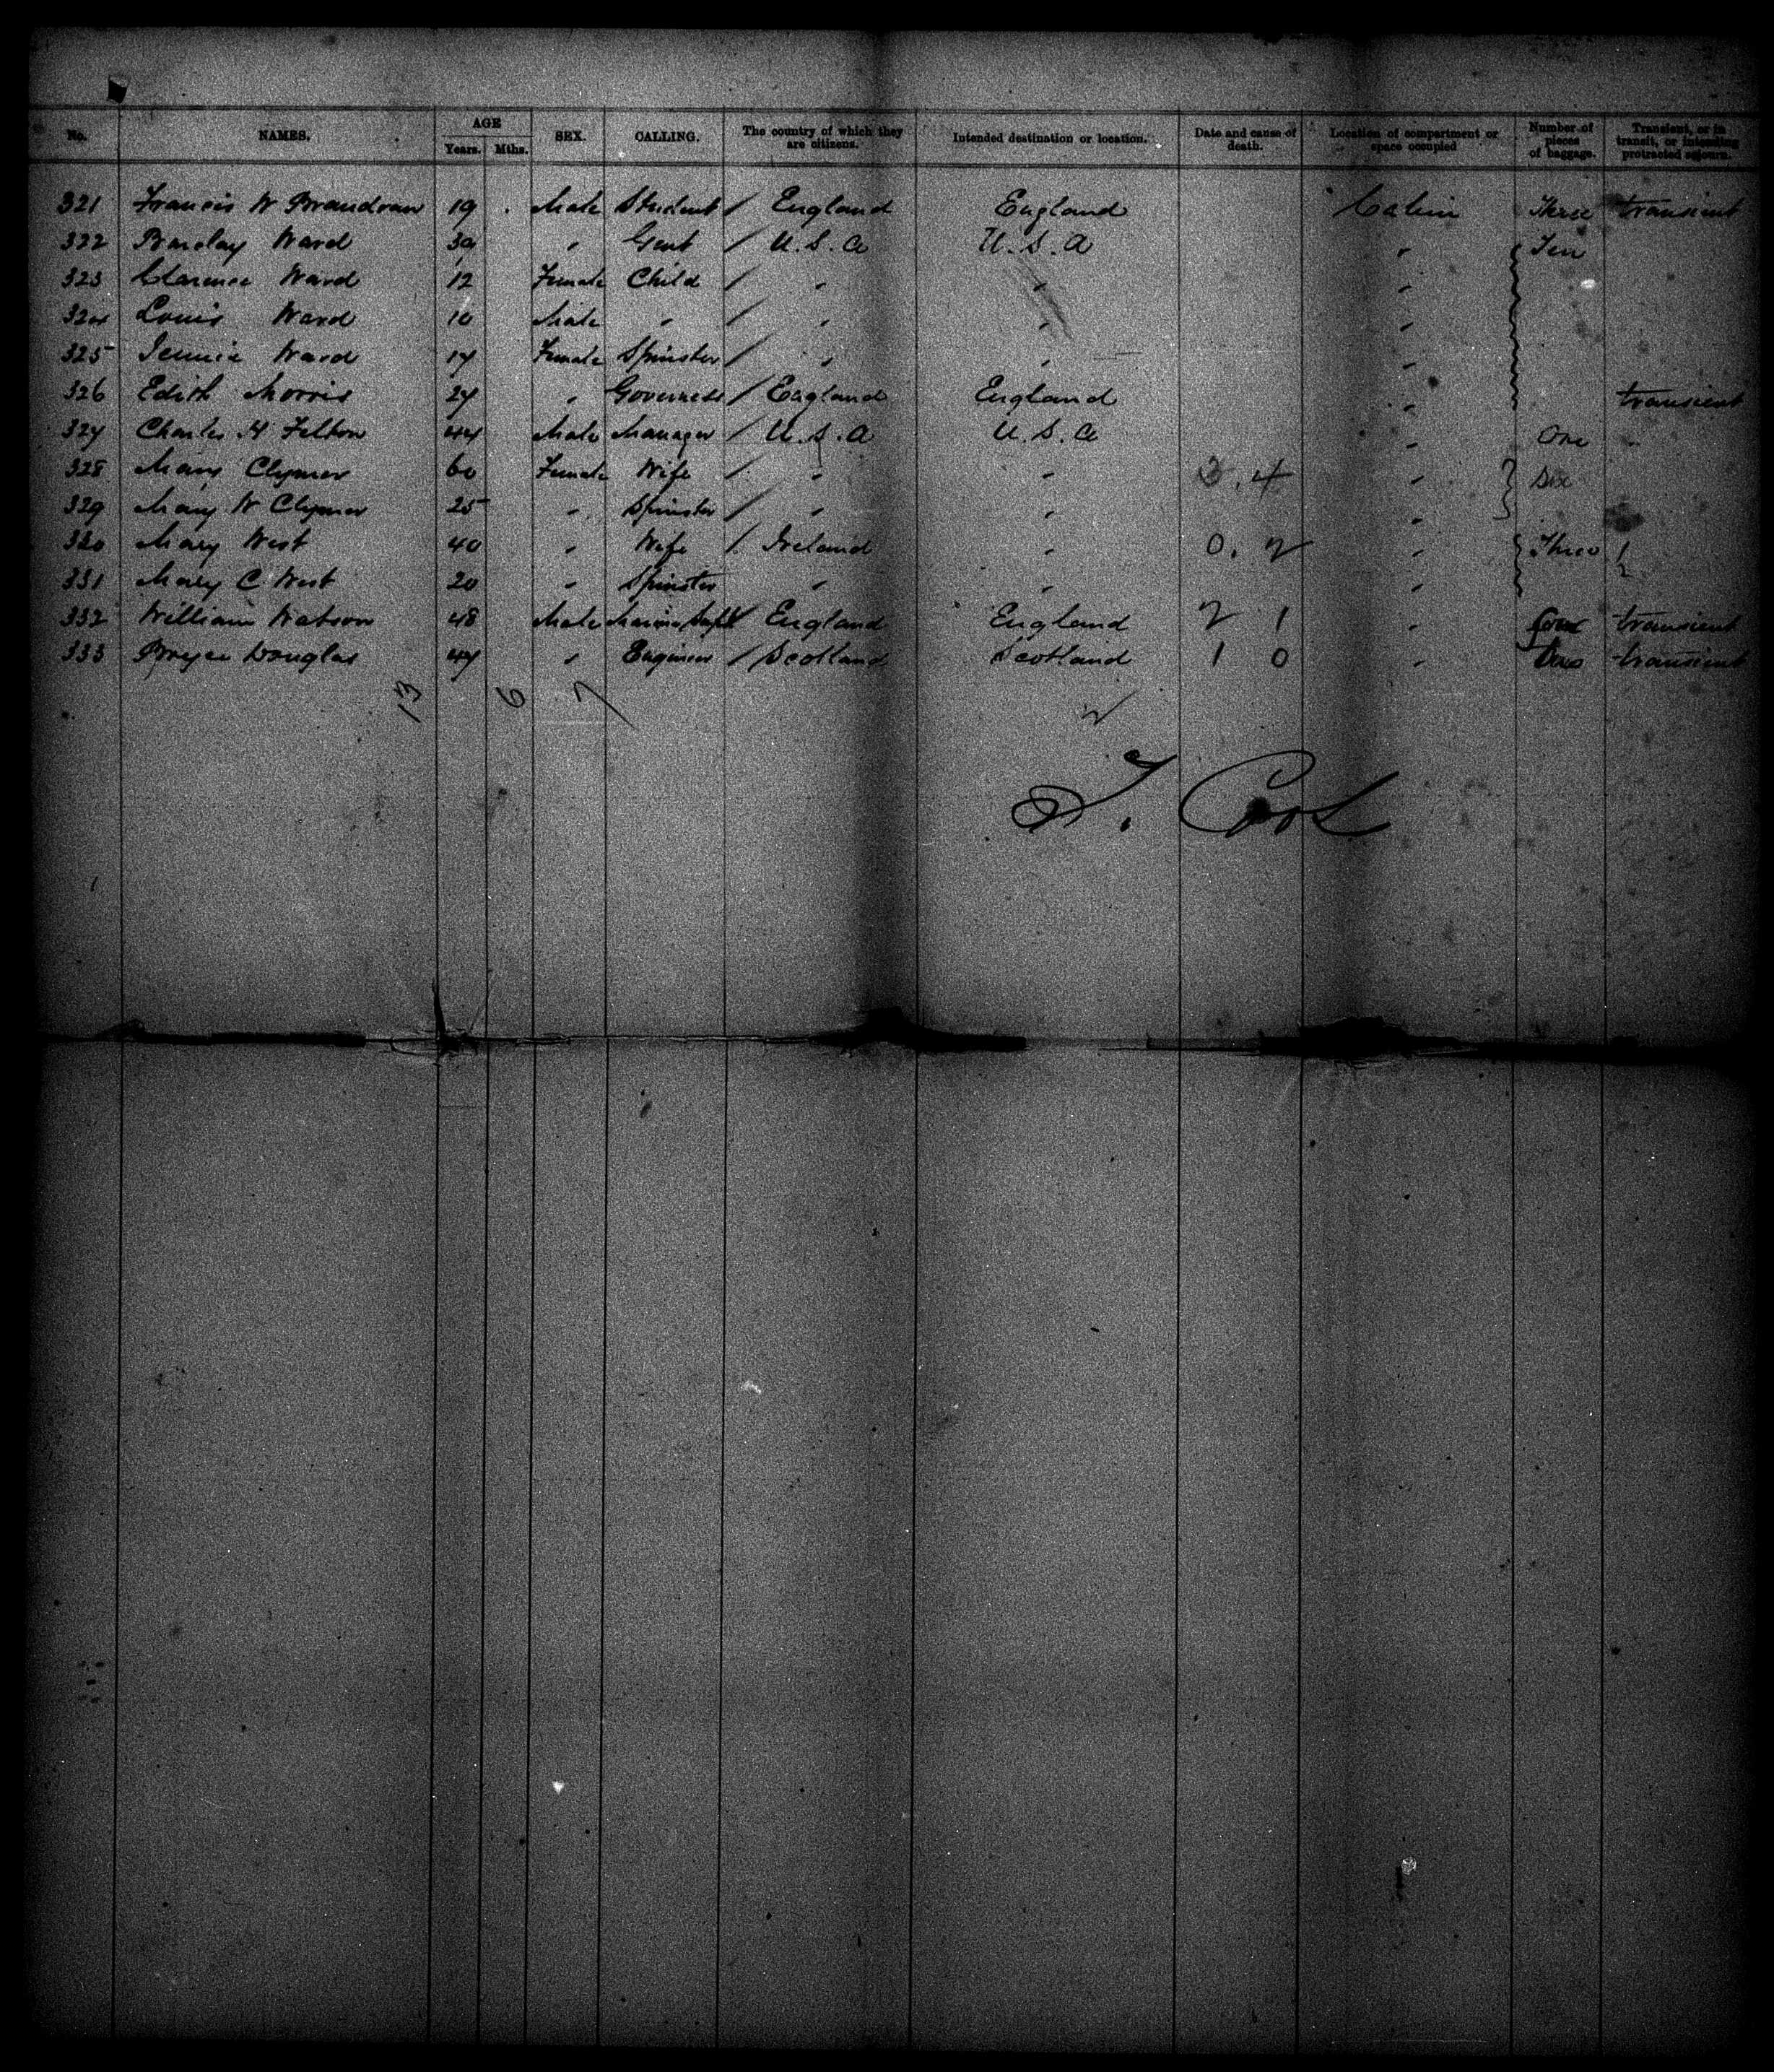 No. NAMES. AGE Years. Mths. SEX. CALLING. The country of which they are citizens. Intended destination or location. Date and cause of death. Location of compartment or space occupied Number of pieces of baggage. Transient, or in transit, or intending protracted sojourn.
321 Francis W 19 Male Student / England England Cabin Three transient
322 Barclay Ward 39 " Gent / U.S.A U.S.A " Ten
323 Clarence Ward 12 Female Child / " " "
324 Louis Ward 10 Male " / " " "
325 Jennie Ward 17 Female Spinster / " " "
326 Edith Morris 27 " Governess / England England " transient
327 Charles H Felton 44 Male Manager / U.S.A U.S.A " One
328 Mary Clymer 60 Female Wife / " " 3.4 " Six
329 Mary W Clymer 25 " Spinster / " " "
330 Mary West 40 " Wife / Ireland " 0.2 " Three
331 Mary C West 20 " Spinster " " "
332 William Watson 48 Male Marine Supt / England England 2 1 " four transient
333 Bryce Douglas 47 " Engineer / Scotland Scotland 1 0 " transient
13 6 7 2